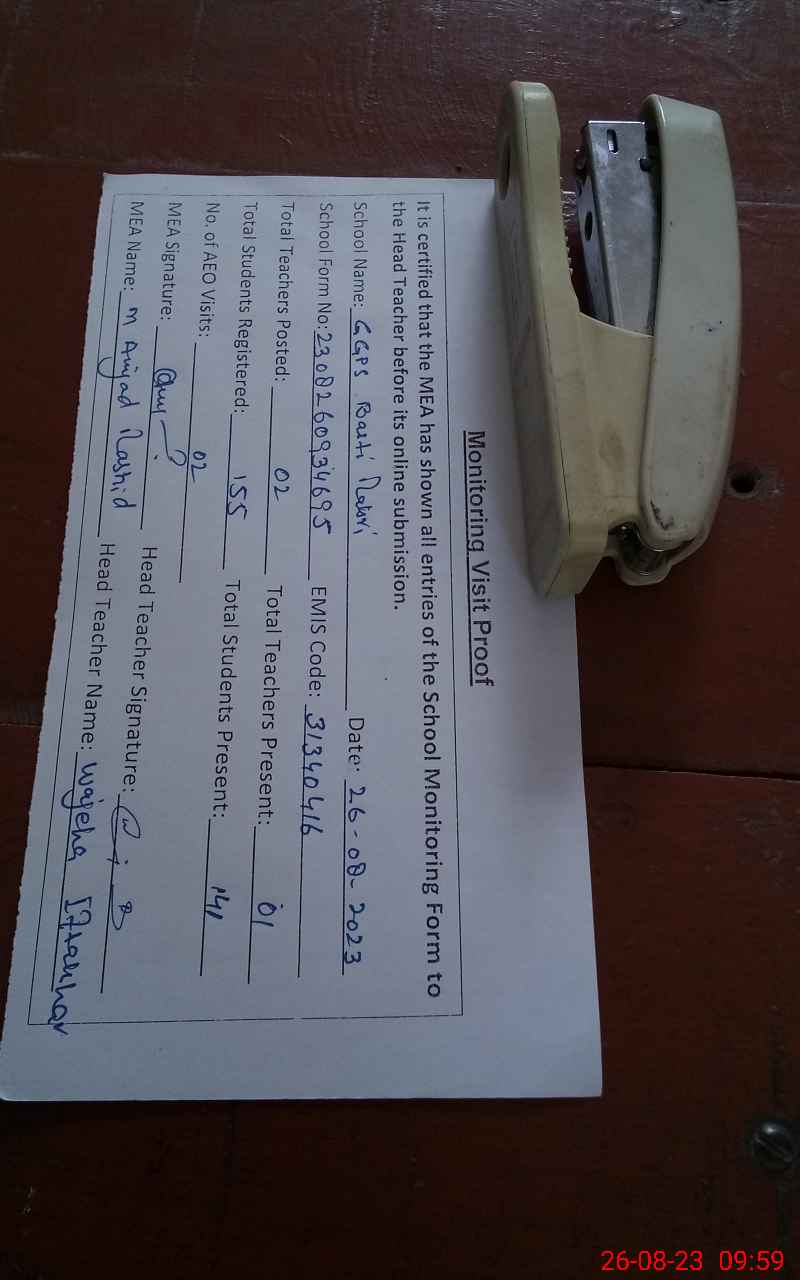 Monitoring Visit Proof
It is certified that the MEA has shown all entries of the School Monitoring Form to
the Head Teacher before its online submission.
School Name: GGPS Basti Date: 26-08-2023
School Form No: 2308260934695 EMIS Code: 31340416
Total Teachers Posted: 02 Total Teachers Present: 01
Total Students Registered: 155 Total Students Present: 141
No. of AEO Visits: 02
MEA Signature: Head Teacher Signature:
MEA Name: M Amjad Rashid Head Teacher Name: Wajeha Iftakhar
26-08-23 09:59